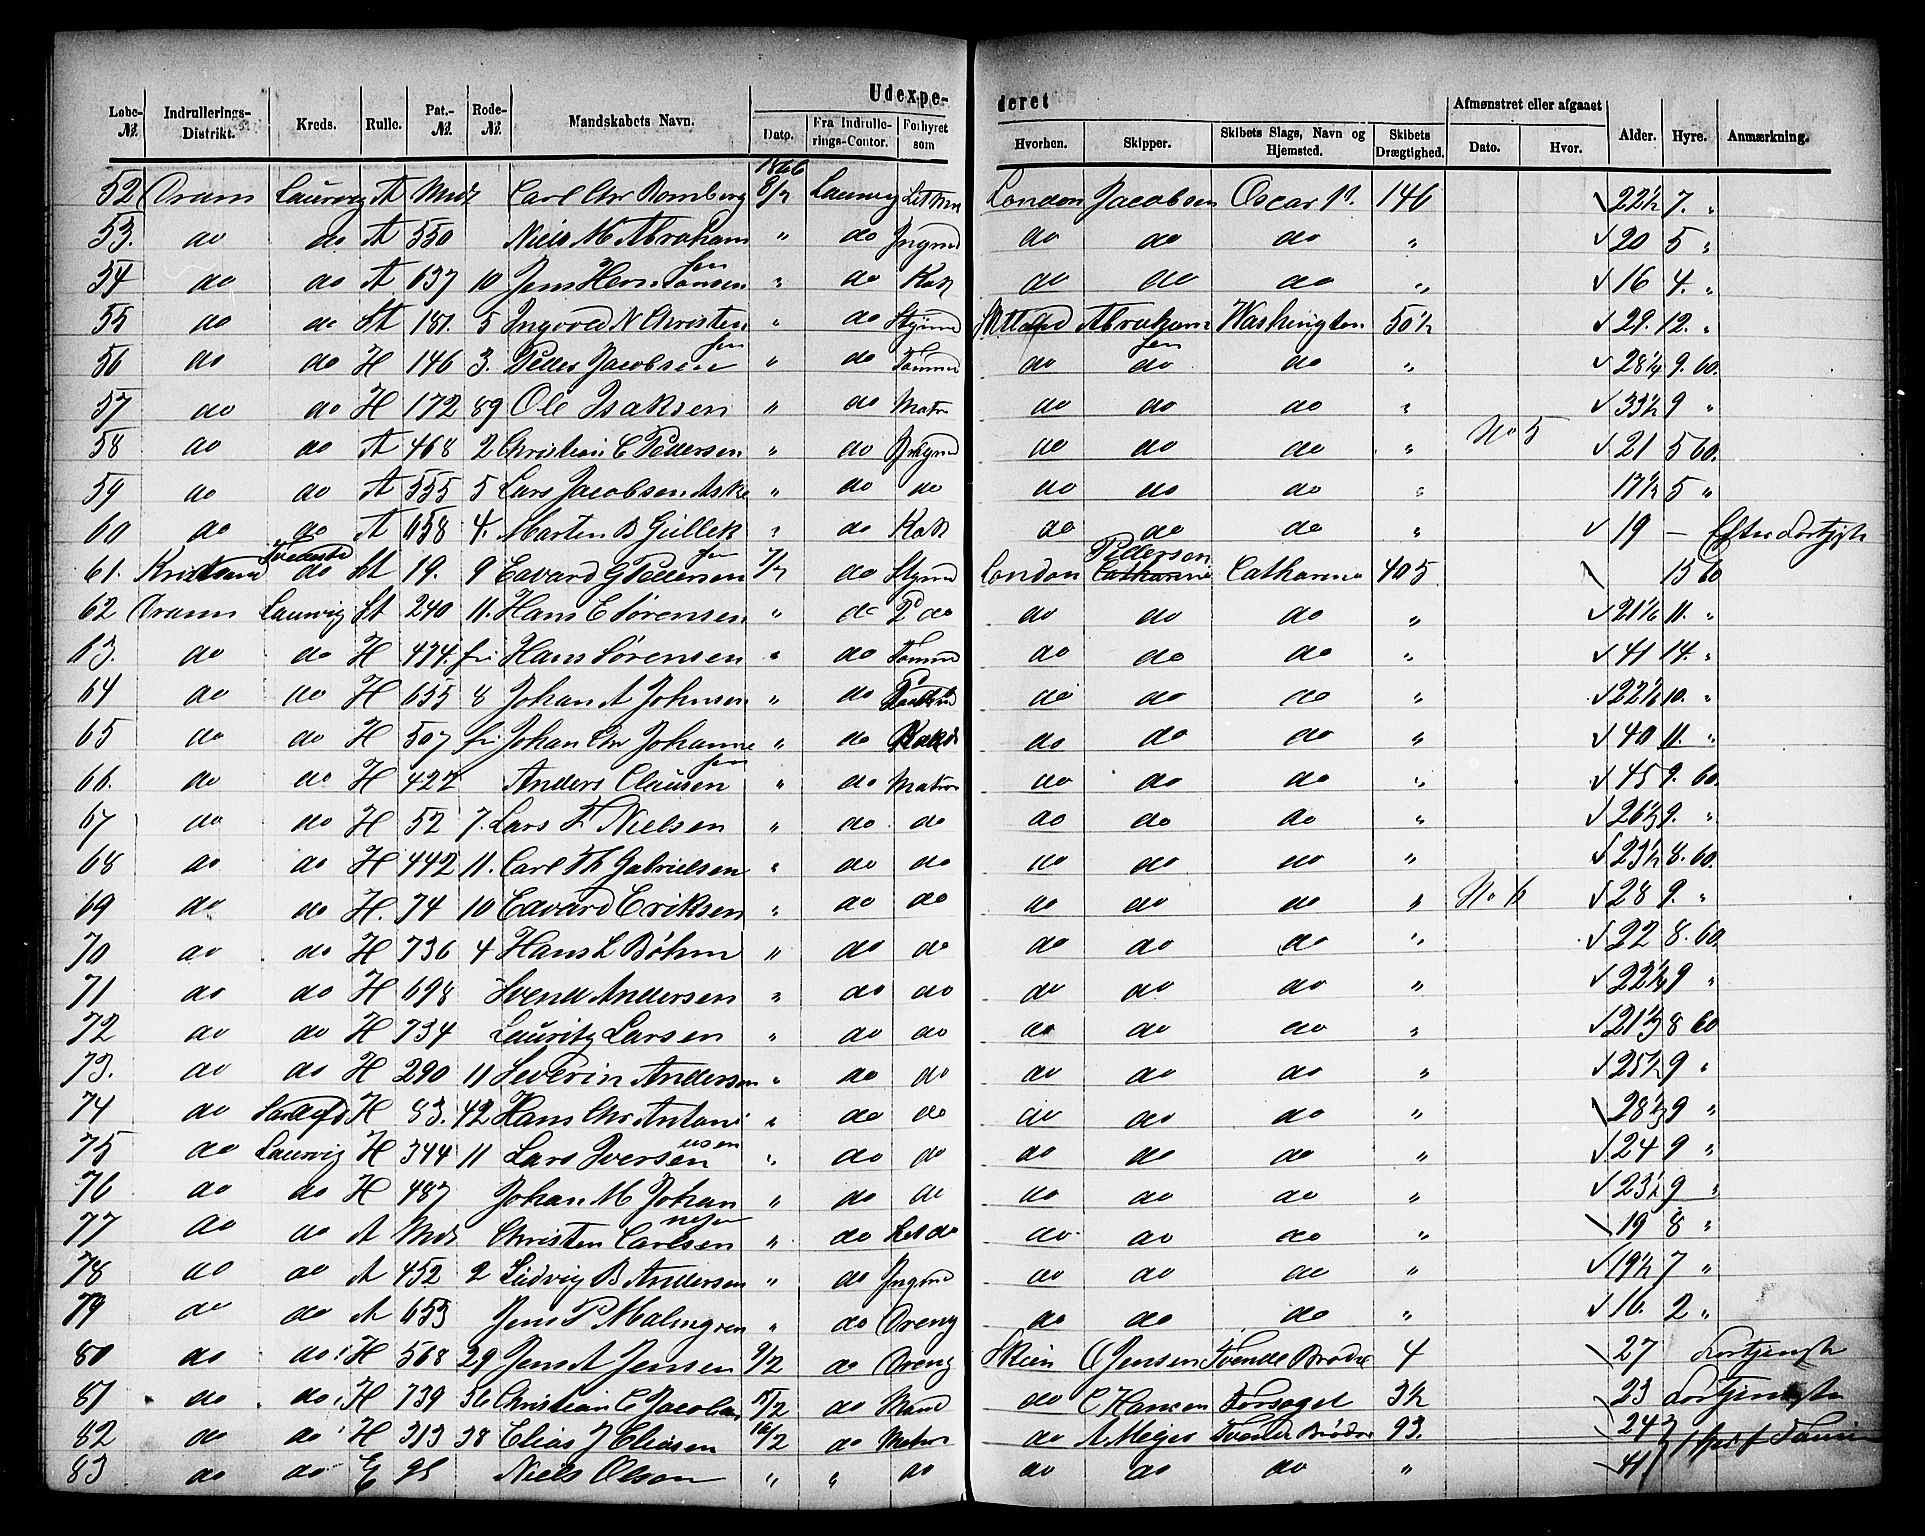 Udexpederet
Løbe-№. Indrullerings-Distrikt. Kreds. Rulle. Pat.-№. Rode-№. Mandskabets Navn. Dato. Fra Indrullerings-Contor. Forhyret som Hvorhen. Skipper. Skibets Slags, Navn og Hjemsted. Skibets Drægtighed. Afmønstret eller afgaaet Dato. Hvor. Alder. Hyre. Anmærkning.
1866
52 Dram Laurvig A Mdz Carl Chr Bomberg 8/2 Laurvig London Jacobsen Oscar 146 22½ 7. "
53. do do A 550 Niels M Abrahamsen " do Jngmd do do do " 20 5 "
54 do do A 637 10 Jens Herm Hansen " do Kok do do do " 16 4. "
55 do do St 181. 5 Ingvard N Christensen " do Stÿrmd Abrahamsen Washington 50½ 29. 12. "
56 do do H 146 3. Peder Jacobsen " do Tømmd do do do " 28¼ 9. 60.
57 do do H 172 89 Ole Isaksen " do Matr do do do " 33½ 9 "
58 do do A 468 2 Christian C Pedersen " do Jngmd do do do " No 5 21 5 60.
59 do do A 555 5 Lars Jacobsen Aske " do do do do do " 17½ 5 "
60 do do A 658 4. Marten B Gulleksen " do Kok do do do " 19 — Efter Fortjste
61. Kristsand Tvedestr do St 19. 9 Edvard G Pedersen 7/2 do Stÿrmd London Pedersen Catharina Catharina 405 15 60
62 Dram Laurvig St 240 11. Hans E Sørensen " do 2 do do do do " 21⅙ 11. "
63. do do H 434. fri Hans Sørensen " do Tømmd do do do " 41 14. "
64 do do H 655 8 Johan A Johnsen " do do do do " 22⅙ 10. "
65 do do H 507 fri Johan Chr Johannesen " do Kok do do do " 40 11. "
66. do do H 427 Anders Clausen " do Matros do do do " 45 9. 60.
67 do do H 52 7. Lars F. Nielsen " do do do do do " 26⅔ 9. "
68 do do H 442 11. Carl Th Gabrielsen " do do do do do " 23½ 8. 60.
69 do do H. 74 10 Edvard Eriksen " do do do do do " No 6 28 9. "
70 do do H 736 4 Hans L Bøhm " do do do do do " 22 8. 60
71 do do H 698 Svend Andersen " do do do do do " 22¼ 9 "
72 do do H 734 Lauritz Larsen " do do do do do " 21⅔ 8 60
73. do do H 290 11 Severin Andersen " do do do do do " 25½ 9 "
74 do H 83. 42 Hans Chr Antoniusen " do do do do do " 28⅓ 9 "
75 do Laurvig H 344 11 Lars Iversen " do do do do do " 24 9 "
76 do do H 487 Johan M Johannesen " do do do do do " 23½ 9 "
77 do do A Mdz Christen Carlsen " do Let do do do do " 19 8 "
78 do do A 452 2 Ludvig B Andersen " do Jngmd do do do " 19½ 7 "
79 do do A 653 Jens P Malmgren " do Dreng do do do " 16. 2 "
80 do do H 568 29 Jens A Jensen 9/2 do Dreng Skien O Jensen Tvende Brødre 4 27 Fortjenste
81 do do H 739 36 Christian C Jacobsen 15/2 do Mand do C Hansen Forsøget 3½ 23 Fortjeneste
82 do do H 313 38 Elias J Eliasen 16/2 do Matros do A Meyer Tvende Brødre 93. 24
83 do do E 95 Niels Olsen " " do do do do " 41